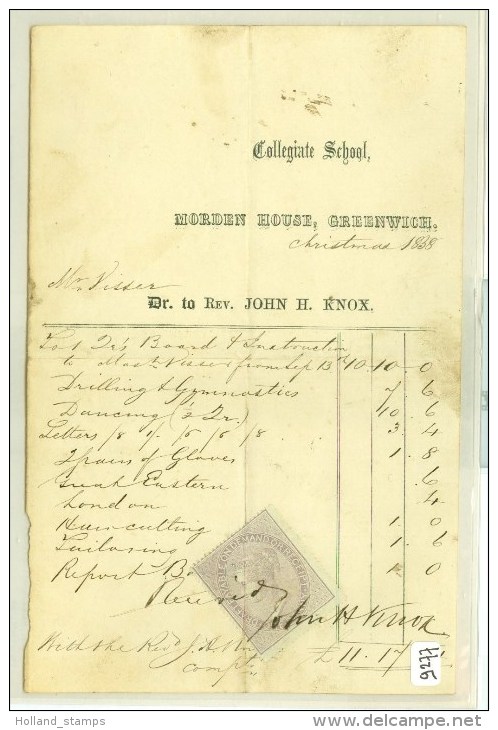 Collegiate School,
MORDEN HOUSE, GREENWICH.
Christmas 1858
Mr. Visser
Dr. to REV. JOHN H. KNOX.
To 1 Qr's Board & Instruction
to Mastr Visser from Sep 13th 10. 10. 0
Drilling & Gymnastics 7 6
Dancing (½ Qr.) 10. 6
Letters /8 /5 /8 /8. 3. 4
2 pairs of Gloves 1. 8
Great Eastern .6
London 4
Haircutting 1. 0
Tailoring 1. 6
Report 1 0
Received
John H Knox
With the Revd J. H.
compts £11. 17
PAYABLE ON DEMAND OR RECEIPT
9277
Holland_stamps
http://www.delcampe.net